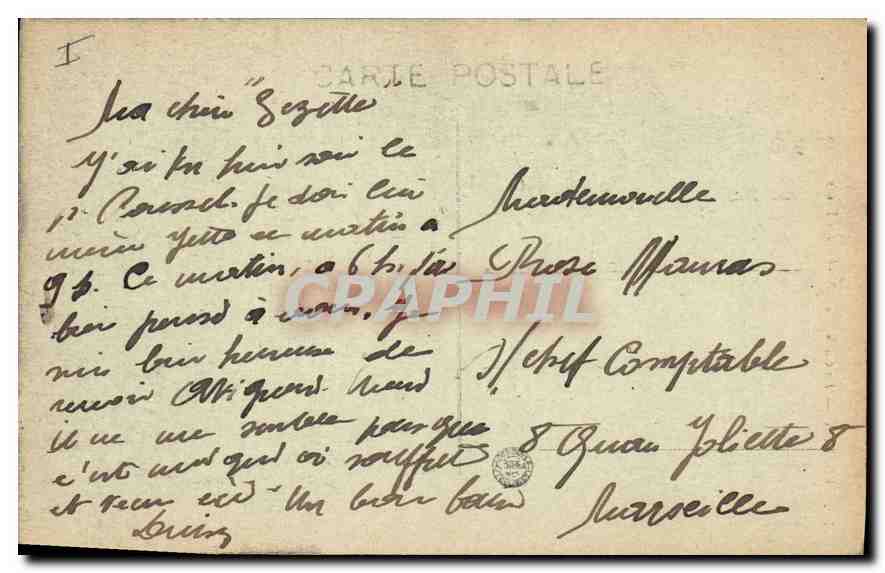 I
CARTE POSTALE
Ma chère Zezette
J'ai vu hier soir le
P. Roussel. Je dois lui
mener Yette ce matin à
9 h. Ce matin, à 6 h, j'ai
bien pensé à vous. Je
suis bien heureuse de
revoir Avignon. Mais
il ne me semble pas que
c'est moi qui ai souffert
et vécu ici. Un bon baiser
Mademoiselle
Rose Mauras
s/chef Comptable
8 Quai Joliette 8
Marseille
CPAPHIL